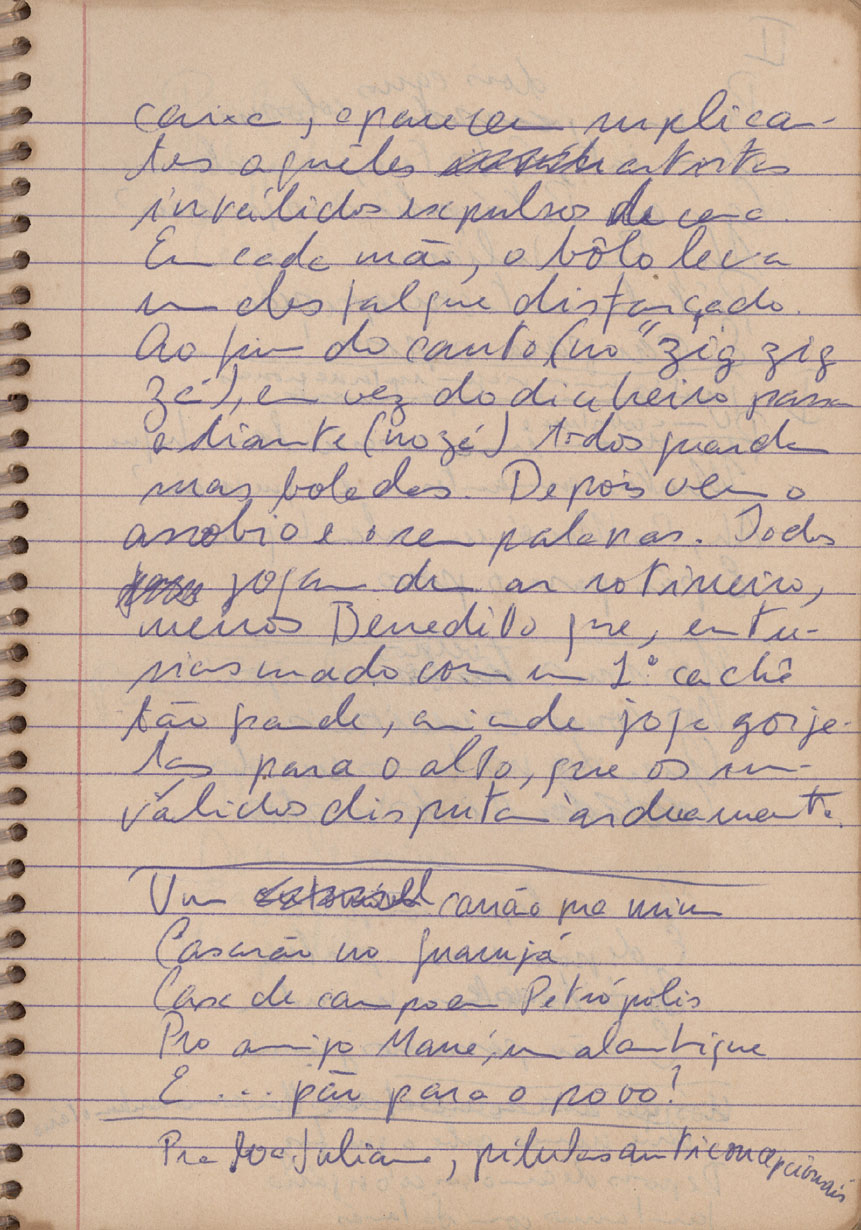 caixa, aparecem suplican-
tes aquêles artistas
inválidos expulsos de cena.
Em cada mão, o bôlo leva
um desfalque disfarçado.
Ao fim do canto (no "zig zig
zá), em vez do dinheiro passa
adiante (no zá) todos guardam
mas boladas. Depois vem o
assobio e o sem palavras. Todos
jogam de ar rotineiro,
menos Benedito que, entu-
siasmado com um 1º cachê
tão grande, ainda joga gorje-
tas para o alto, que os in-
válidos disputam àrduamente.
Um carrão pra mim
Casarão no Guarujá
Casa de campo em Petrópolis
Pro amigo Mané, um alambique
E ... pão para o povo!
Pra Juliana, pílulas anticoncepcionais